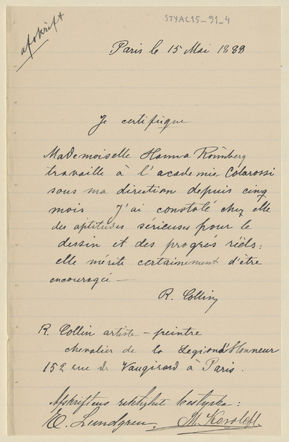 afskrift
STYAC15_91_4
Paris le 15 Mai 1889
Je certifique
Mademoiselle Hanna Rönnberg
travaille à l'academie Colarossi
sous ma direction depuis cinq
mois J'ai constaté chez elle
des aptitudes serieuses pour le
dessin et des progrés réels:
elle mérite certainement d'être
encouragée —
R. Collin
R. Collin artiste – peintre
chevalier de la Legion d'Honneur
152 rue de Vaugirard à Paris.
Afskriftens riktighet bestyrka:
E. Lundgren